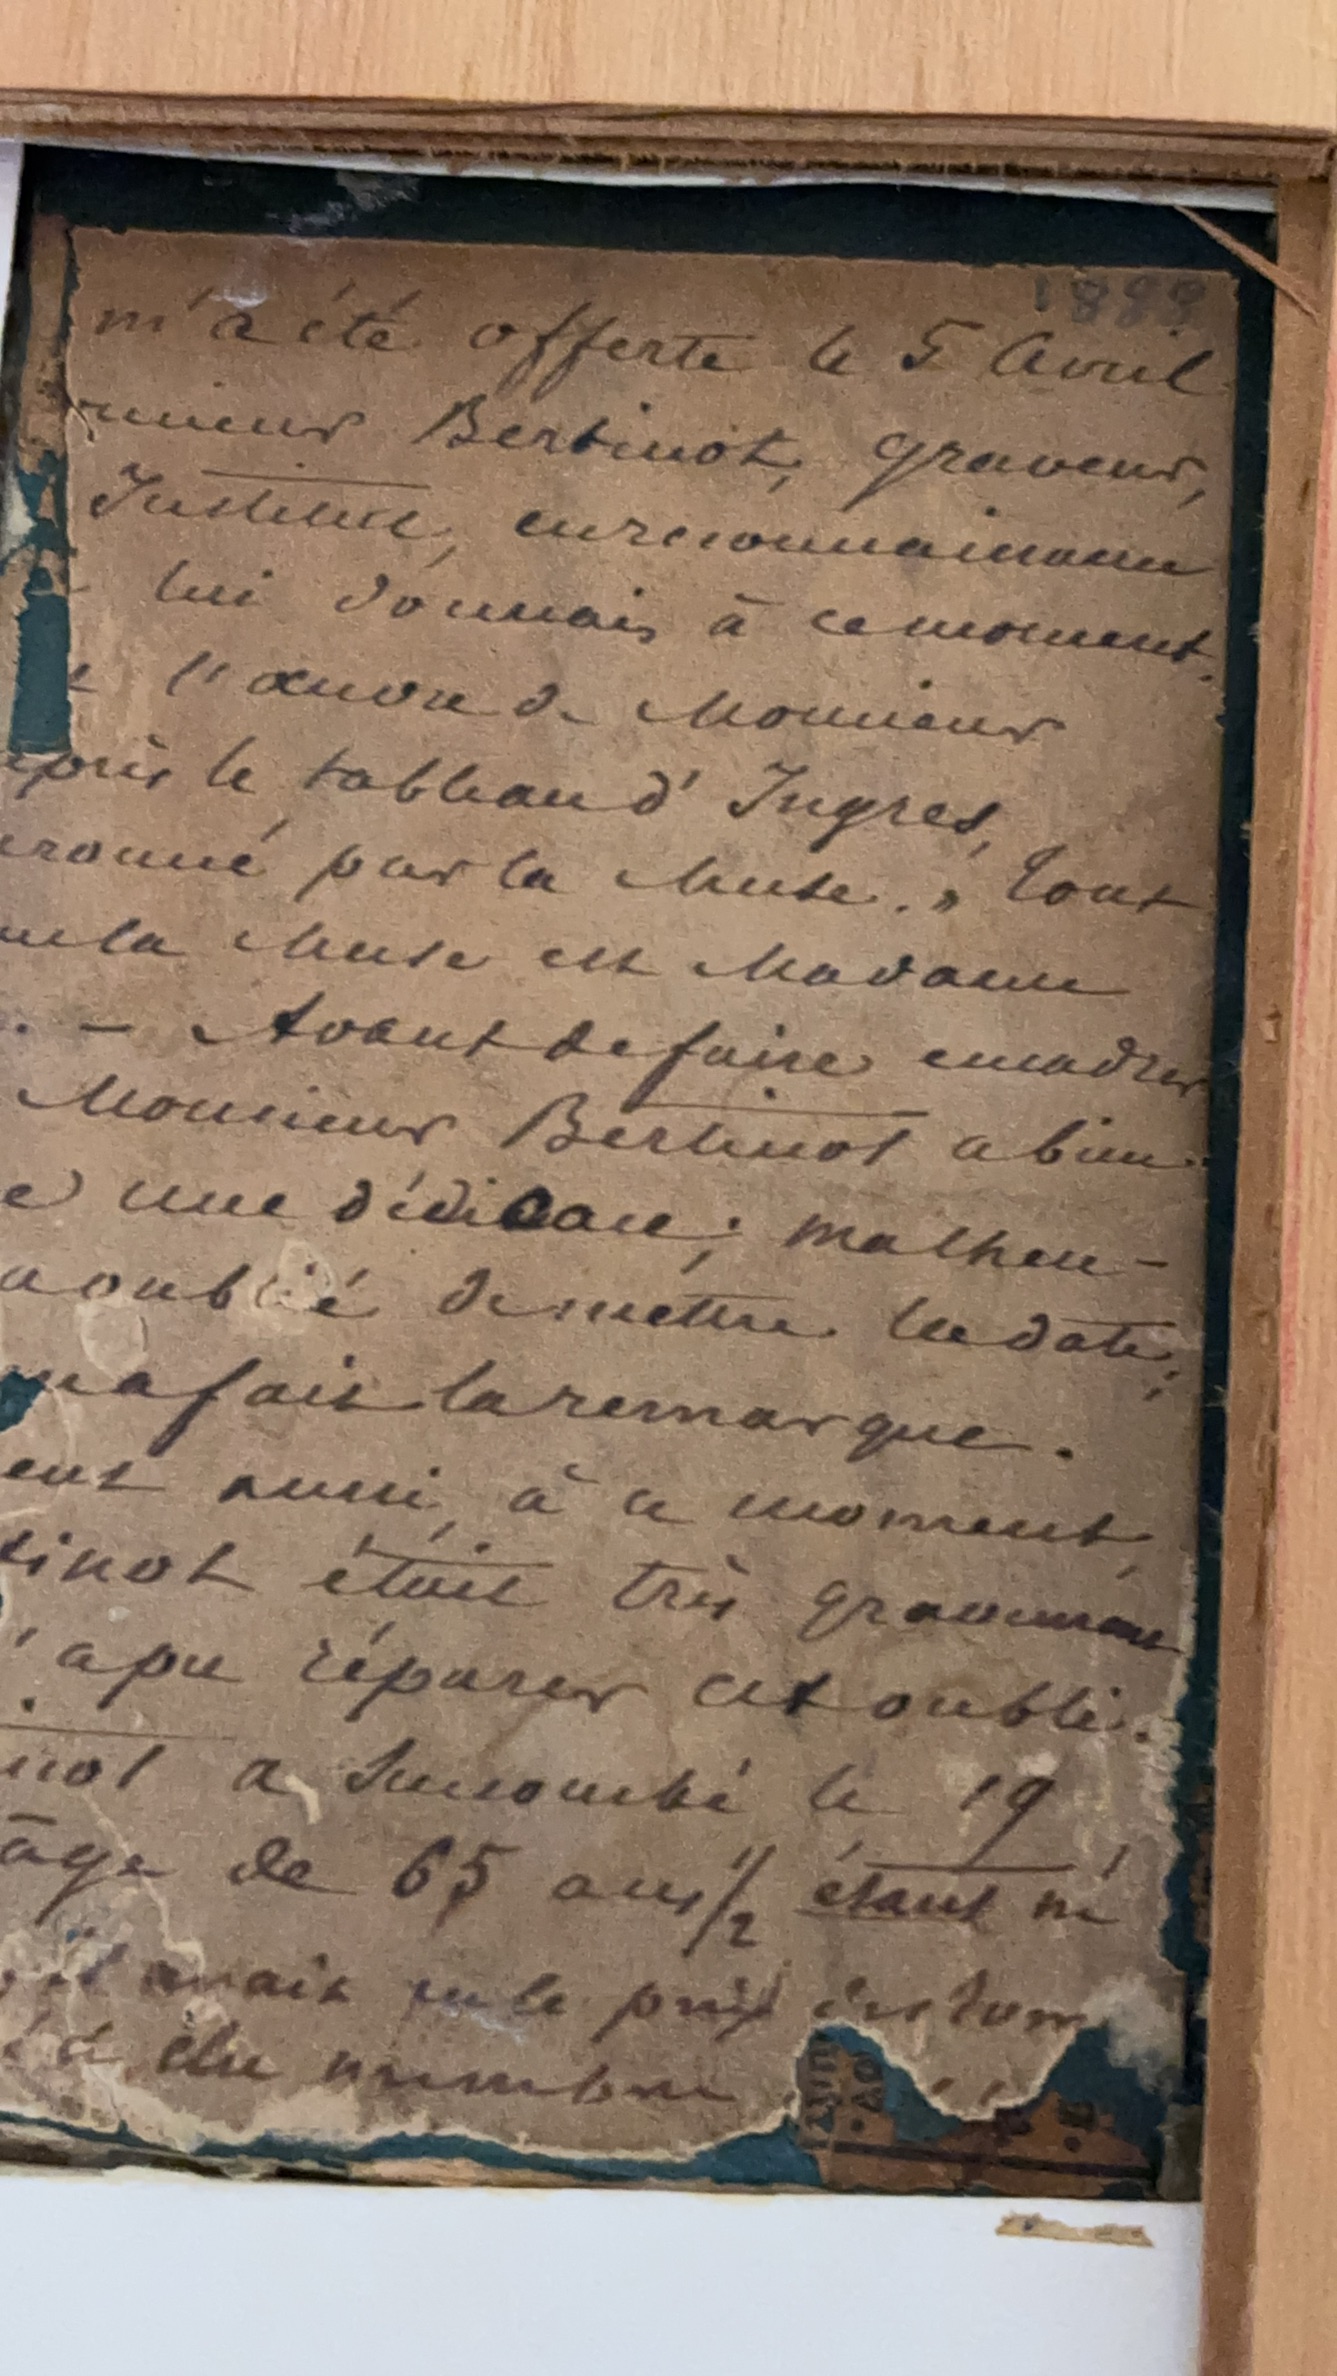 1888
m'a été offerte le 5 Avril
nsieur Bertinot, graveur,
Institut, en reconnaissance
lui donnais à ce moment.
l'œuvre de Monsieur
près le tableau d'Ingres,
ronné par la Muse." Tout
la Muse est Madame
. - Avant de faire encadrer
Monsieur Bertinot a bien
une dédicace; malheu-
a oublié de mettre la date;
n a fait la remarque.
ent aussi, à ce moment,
tinot était très gravement
'a pu réparer cet oubli.
not a succombé le 19
âge de 65 ans 1/2 étant né
il avait eu le prix de Rome
été élu membre